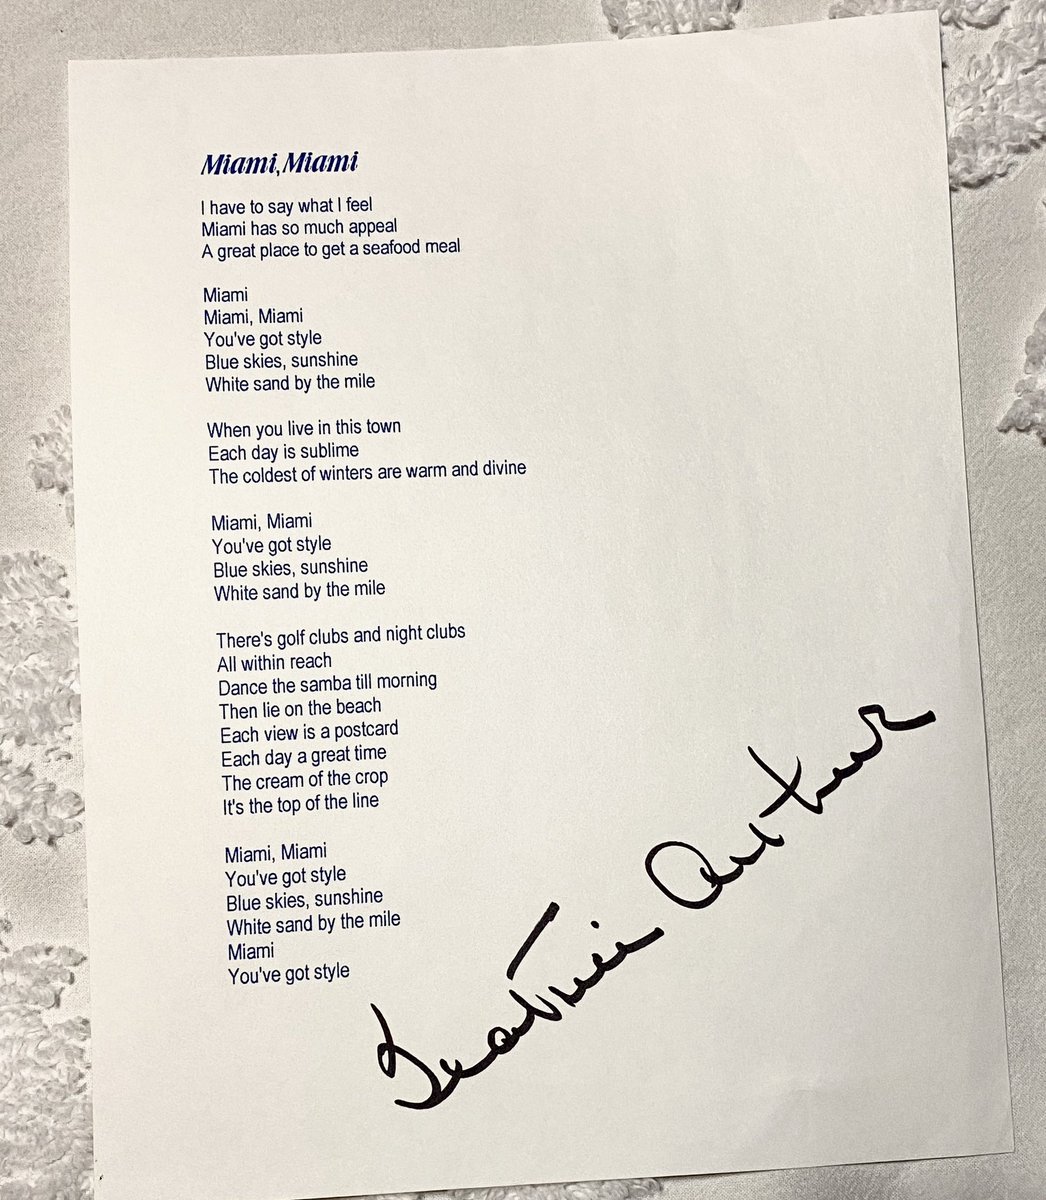 Miami, Miami
I have to say what I feel
Miami has so much appeal
A great place to get a seafood meal
Miami
Miami, Miami
You've got style
Blue skies, sunshine
White sand by the mile
When you live in this town
Each day is sublime
The coldest of winters are warm and divine
Miami, Miami
You've got style
Blue skies, sunshine
White sand by the mile
There's golf clubs and night clubs
All within reach
Dance the samba till morning
Then lie on the beach
Each view is a postcard
Each day a great time
The cream of the crop
It's the top of the line
Miami, Miami
You've got style
Blue skies, sunshine
White sand by the mile
Miami
You've got style
Beatrice Arthur